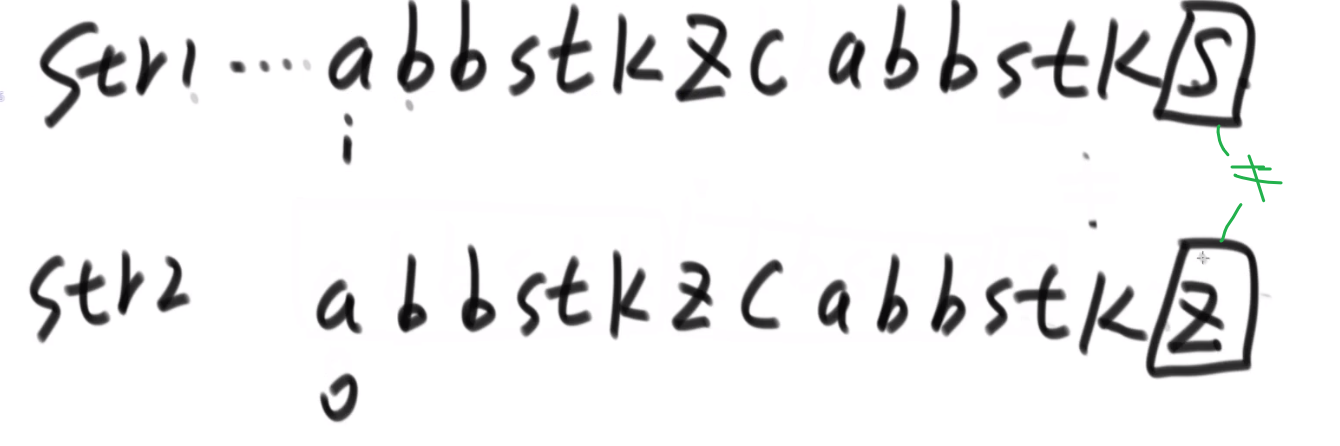 str1 ···· a b b s t k z c a b b s t k s
i
≠
str2 a b b s t k z c a b b s t k z
0